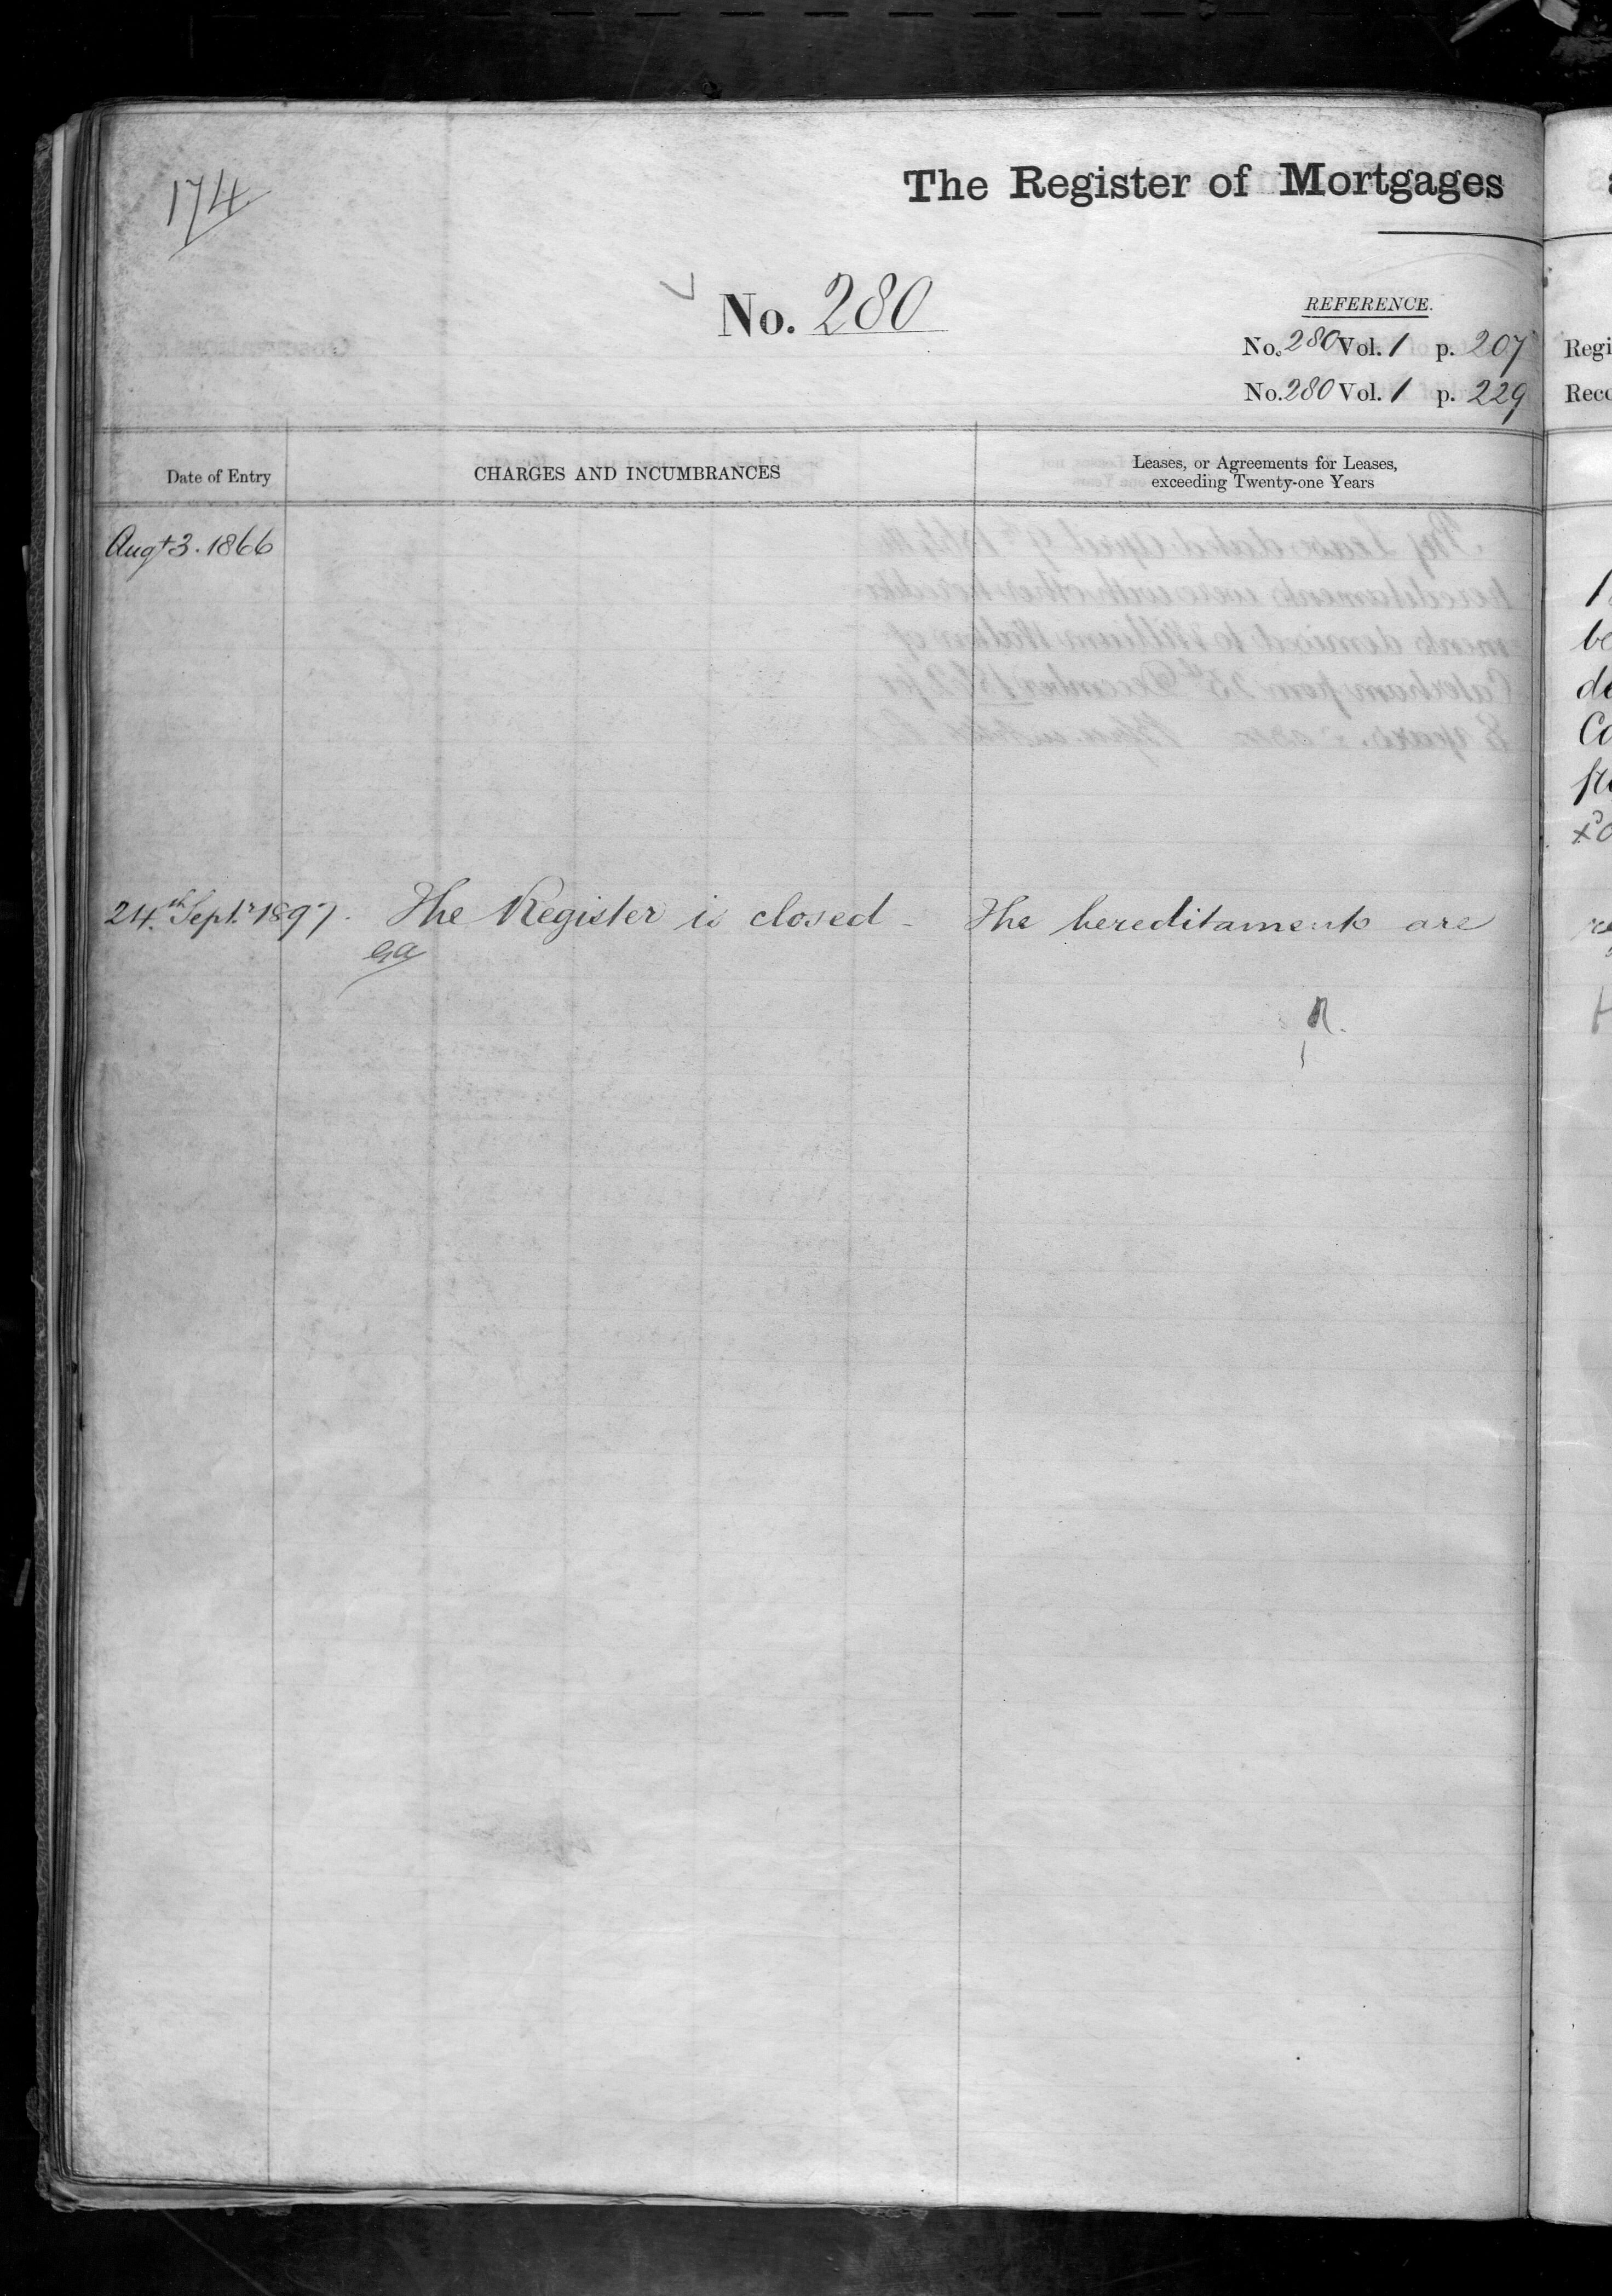 174
The Register of Mortgages
No. 280
REFERENCE.
No. 280 Vol. 1 p. 207
No. 280 Vol. 1 p. 229
Regi
Reco
Date of Entry
CHARGES AND INCUMBRANCES
Leases, or Agreements for Leases,
exceeding Twenty-one Years
Augt 3. 1866
be
de
24th Septr 1897. The Register is closed - The hereditaments are